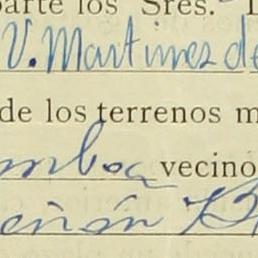 parte los Sres.
V. Martinez de
de los terrenos m
mboa vecino